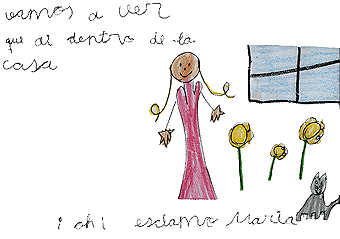 vamos a ver
que ai dentro de la
casa
¡ oh ! esclamo María